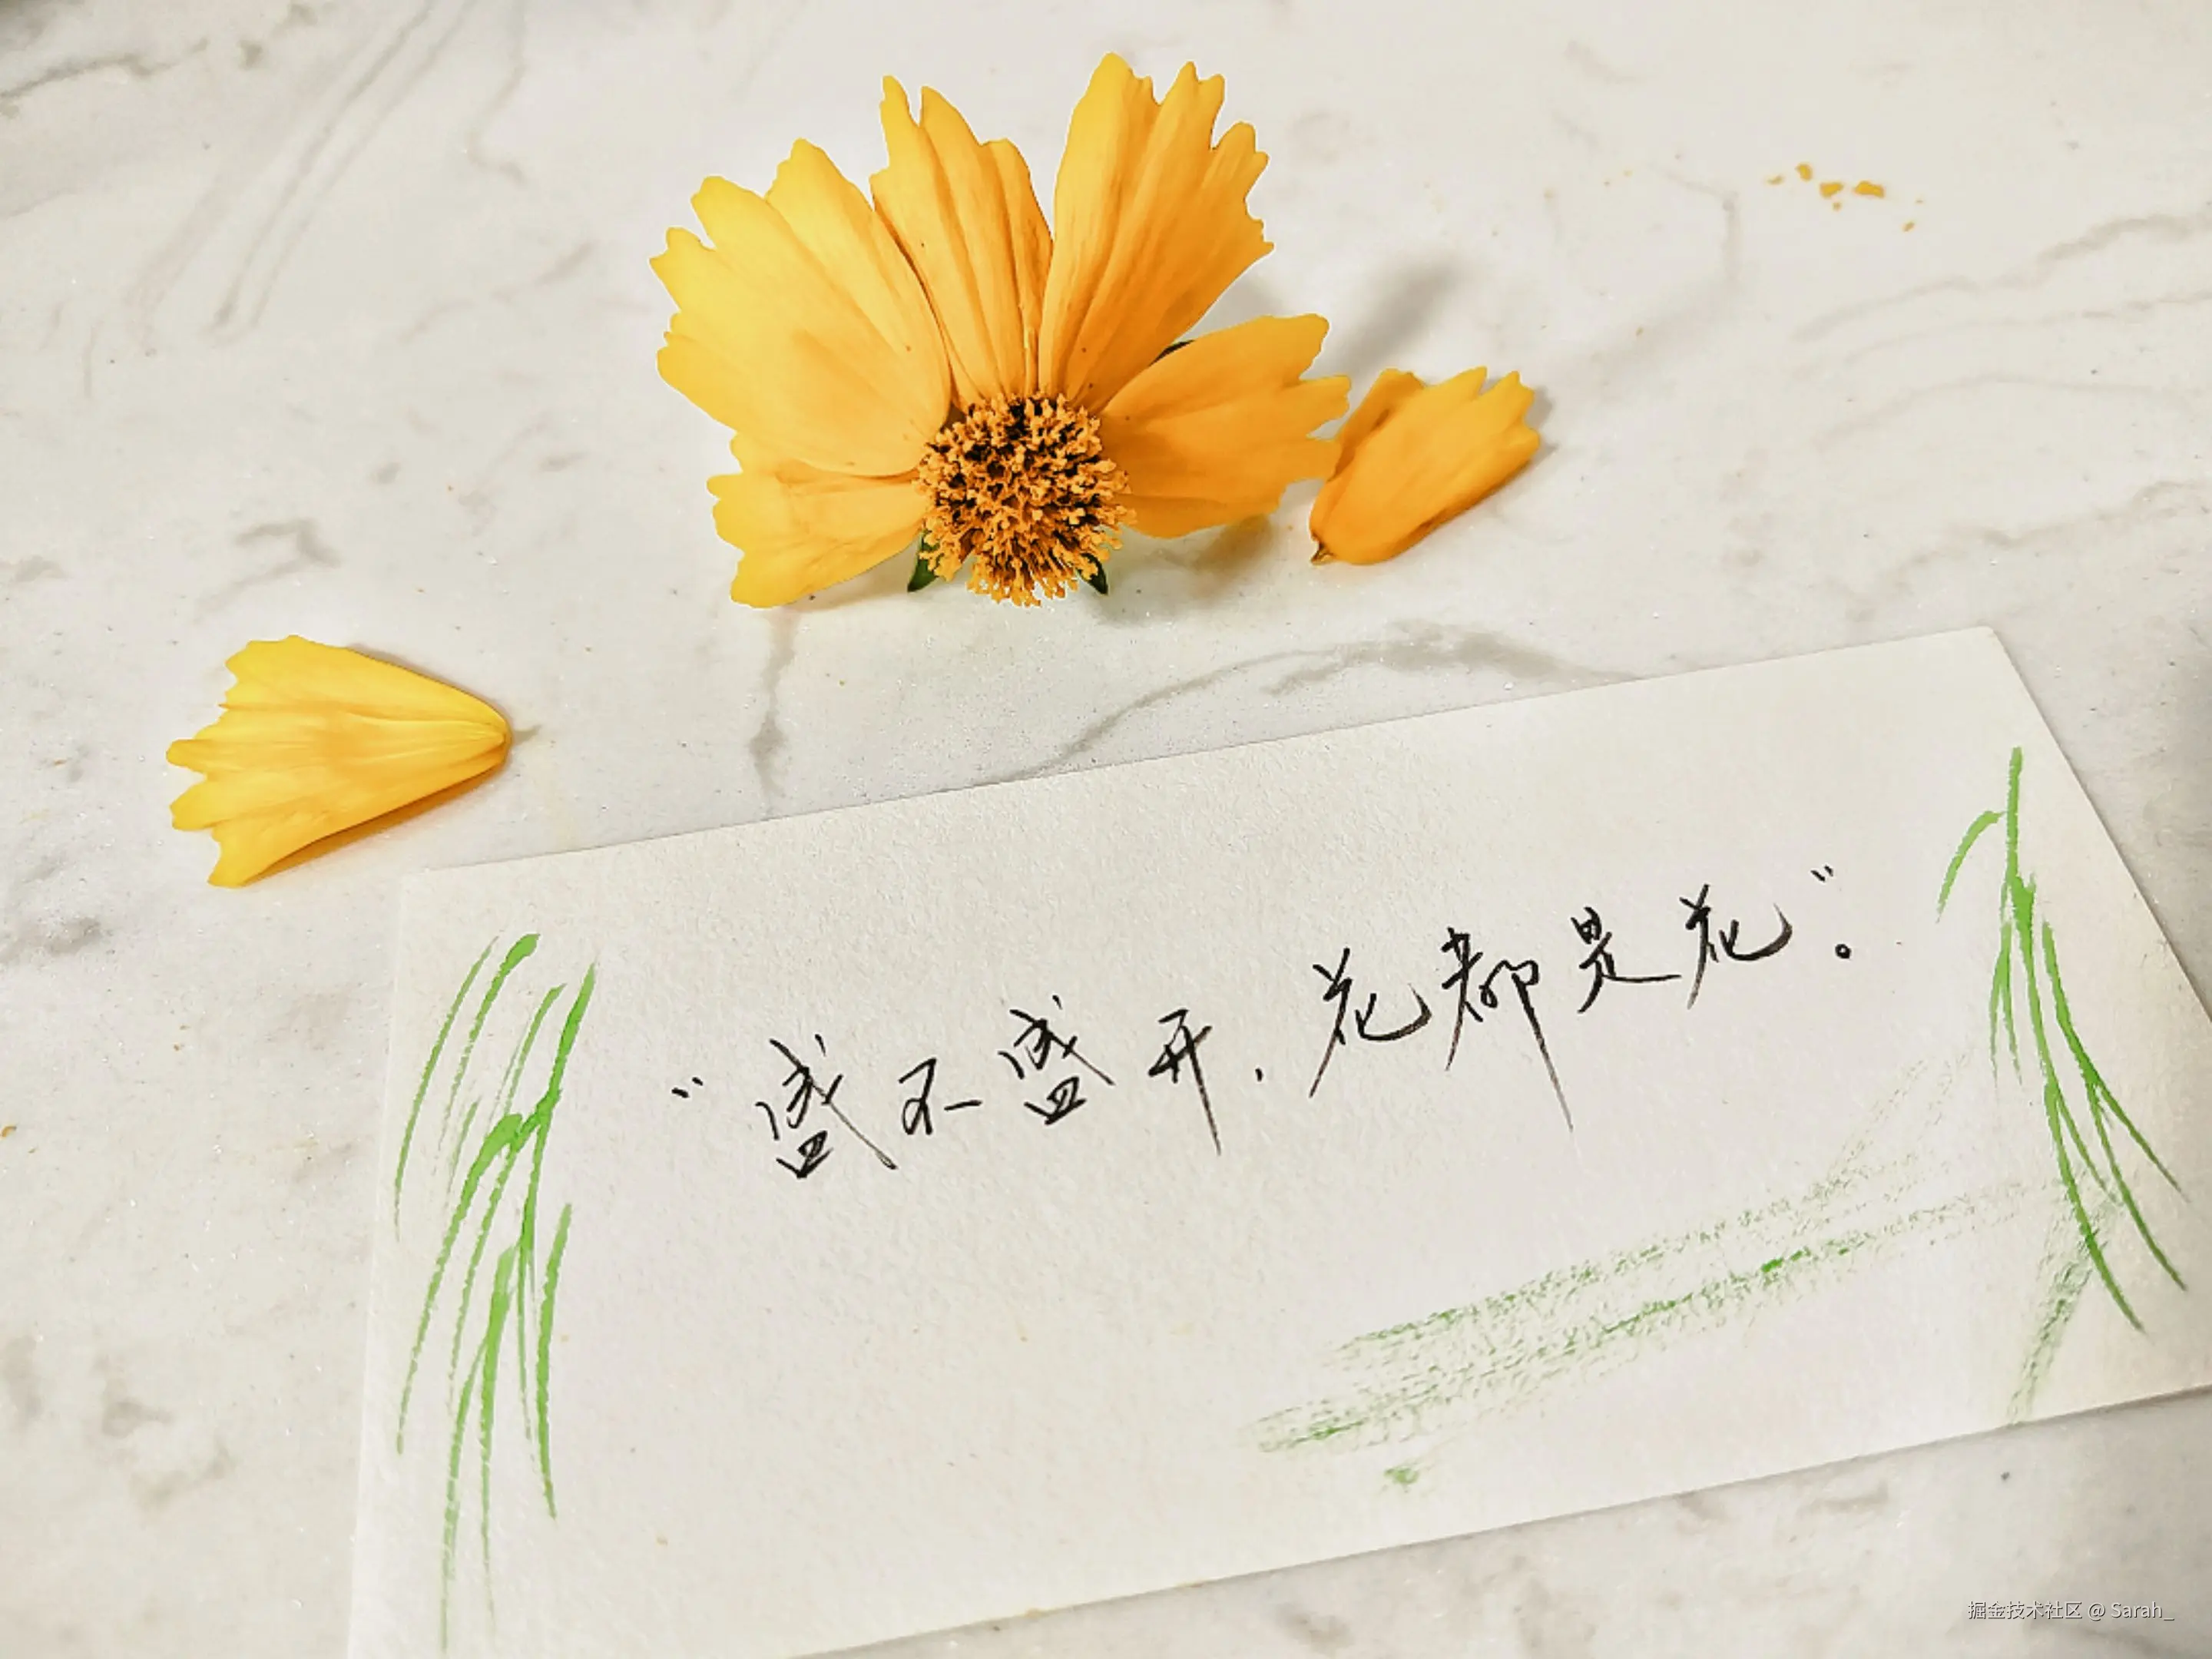 “盛不盛开，花都是花”。
掘金技术社区 @ Sarah_